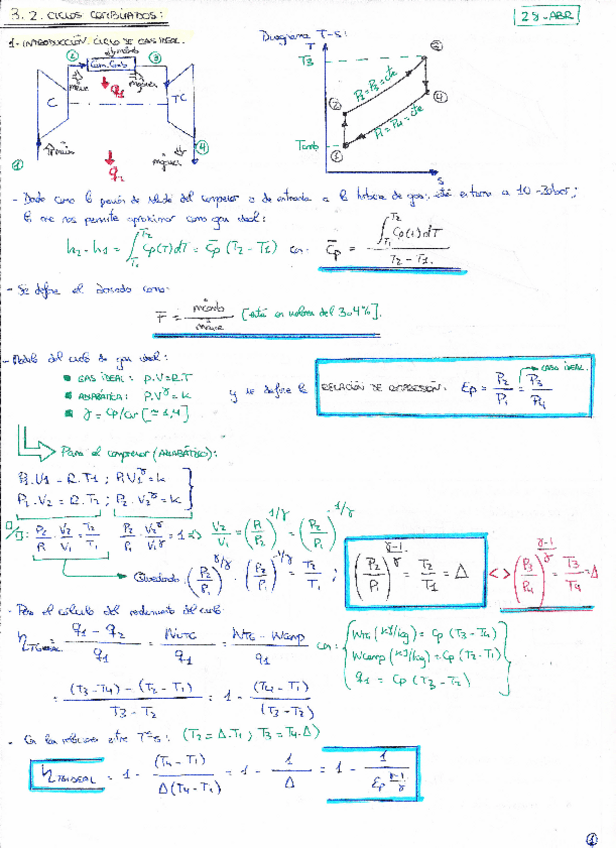 3.2. CICLOS COMBINADOS:
28-ABR
1- INTRODUCCIÓN. CICLO DE GAS IDEAL.
Diagrama T-S:
② Cam. Comb ③
C
TC
q1
q2
①
④
T
T3
Tamb
S
①
②
③
④
P2=P3=cte
P1=P4=cte
- Dado como la presión de salida del compresor o de entrada a la turbina de gas, está en torno a 10-30bar;
h2-h1 = ∫T1^T2 Cp(T)dT = C̄p (T2-T1) con C̄p = ∫T1^T2 Cp(T)dT / T2-T1.
- Se define el dosado como:
F = ṁcomb / ṁaire [está en valores del 3 o 4%].
- Modelo del ciclo de gas ideal:
GAS IDEAL: P.V=R.T
ADIABÁTICA: P.V^γ=K
γ = Cp/Cv [≈ 1,4]
y se define la RELACIÓN DE COMPRESIÓN. Ep = P2/P1 = P3/P4
CASO IDEAL.
Para el compresor (ADIABÁTICO):
P1.V1 = R.T1 ; P1V1^γ=k
P2.V2 = R.T2 ; P2.V2^γ=k
P2/P1 . V2/V1 = T2/T1
P2/P1 . V2^γ/V1^γ = 1 => V2/V1 = (P1/P2)^1/γ = (P2/P1)^-1/γ
Quedando (P2/P1)^γ/γ . (P2/P1)^-1/γ = T2/T1 ;
(P2/P1)^γ-1/γ = T2/T1 = Δ <> (P3/P4)^γ-1/γ = T3/T4 = Δ
- Para el cálculo del rendimiento del ciclo
η TG IDEAL = q1-q2 / q1 = WNTG / q1 = WTG - Wcomp / q1 con:
WTG (KJ/kg) = Cp (T3-T4)
Wcomp (KJ/kg) = Cp (T2-T1)
q1 = Cp (T3-T2)
= (T3-T4) - (T2-T1) / T3-T2 = 1 - (T4-T1) / (T3-T2)
- Con las relaciones entre Tªs: (T2=Δ.T1 ; T3=T4.Δ)
η TG IDEAL = 1 - (T4-T1) / Δ(T4-T1) = 1 - 1/Δ = 1 - 1 / Ep^γ-1/γ
①